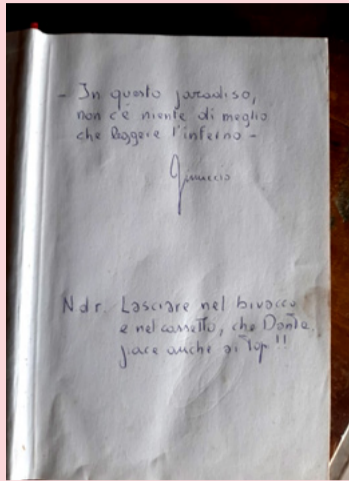 - In questo paradiso,
non c'è niente di meglio
che leggere l'inferno -
Ndr. Lasciare nel bivacco
e nel cassetto, che Dante
piace anche ai topi!!